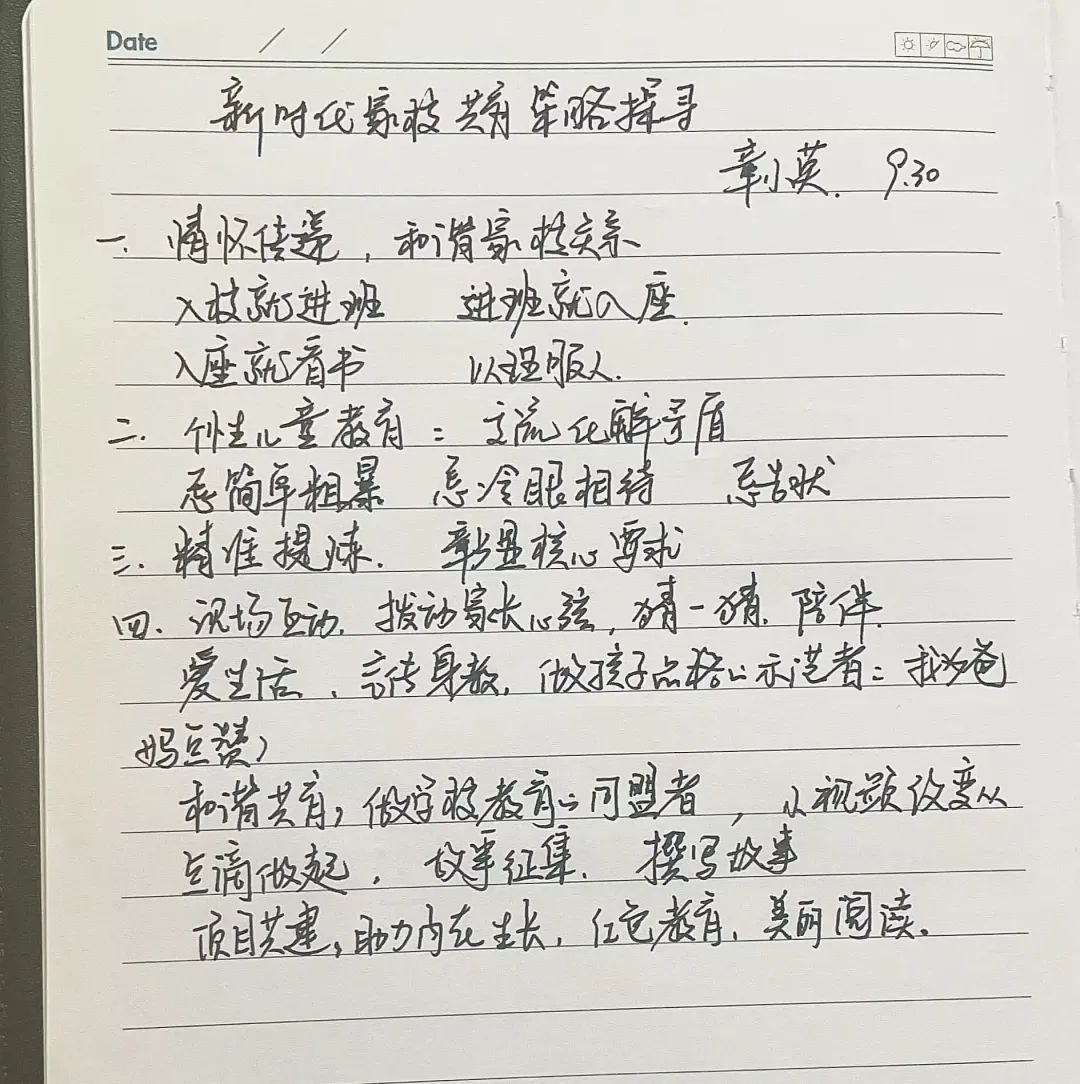 Date / /
新时代家校共育策略探寻
章小英. 9.30
一. 情怀传递，和谐家校关系
入校就进班 进班就入座.
入座就看书 以理服人.
二. 个性儿童教育：交流化解矛盾
忌简单粗暴 忌冷眼相待 忌告状
三. 精准提炼. 彰显核心要求
四. 现场互动. 拨动家长心弦，猜一猜. 陪伴.
爱生活、言传身教. 做孩子品格的示范者：我为爸
妈点赞，
和谐共育，做学校教育的同盟者，小视频改变从
点滴做起， 故事征集. 撰写故事
项目共建，助力内在生长. 红色教育. 美丽阅读。